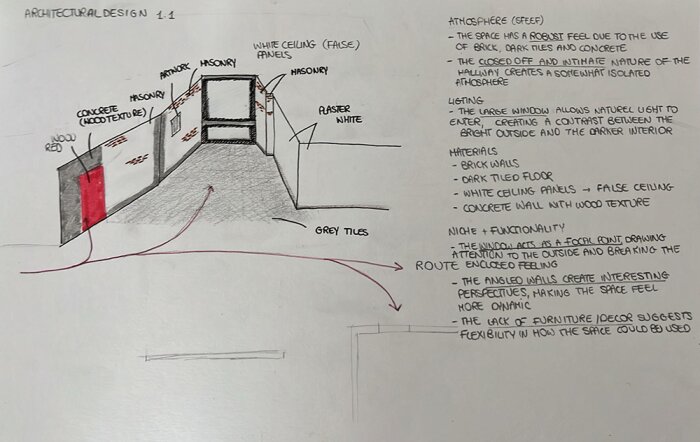 ARCHITECTURAL DESIGN 1.1
WHITE CEILING (FALSE)
PANELS
MASONRY
ARTWORK
MASONRY
MASONRY
CONCRETE
(WOODTEXTURE)
WOOD
RED
PLASTER
WHITE
GREY TILES
ROUTE
ATMOSPHERE (SFEER)
- THE SPACE HAS A ROBUST FEEL DUE TO THE USE
OF BRICK, DARK TILES AND CONCRETE
- THE CLOSED OFF AND INTIMATE NATURE OF THE
HALLWAY CREATES A SOMEWHAT ISOLATED
ATMOSPHERE
LIGTING
- THE LARGE WINDOW ALLOWS NATUREL LIGHT TO
ENTER, CREATING A CONTRAST BETWEEN THE
BRIGHT OUTSIDE AND THE DARKER INTERIOR
MATERIALS
- BRICK WALLS
- DARK TILED FLOOR
- WHITE CEILING PANELS → FALSE CEILING
- CONCRETE WALL WITH WOOD TEXTURE
NICHE + FUNCTIONALITY
- THE WINDOW ACTS AS A FOCAL POINT, DRAWING
ATTENTION TO THE OUTSIDE AND BREAKING THE
ENCLOSED FEELING
- THE ANGLED WALLS CREATE INTERESTING
PERSPECTIVES, MAKING THE SPACE FEEL
MORE DYNAMIC
- THE LACK OF FURNITURE/DECOR SUGGESTS
FLEXIBILITY IN HOW THE SPACE COULD BE USED